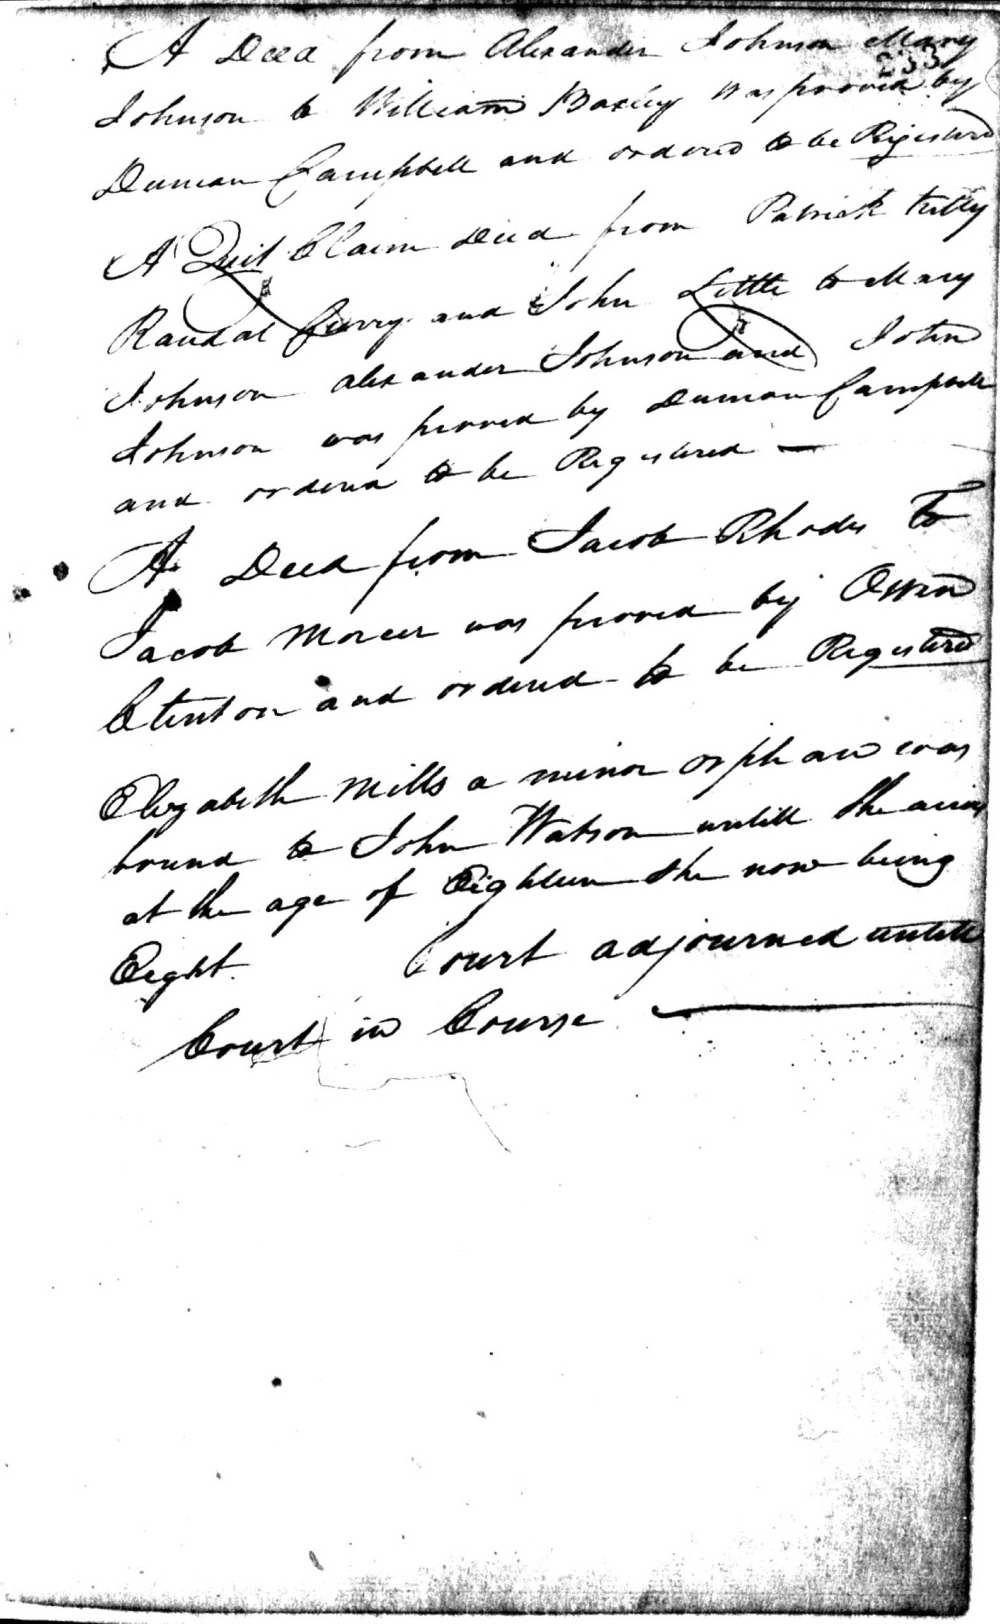 A Deed from Alexander Johnson Mary
233
Johnson to William Baxley was proved by
Duncan Campbell and ordered to be Registered
A Quit Claim Deed from Patrick
Randal Curry and John Little to Mary
Johnson Alexander Johnson and John
Johnson was proved by Duncan Campbell
and ordered to be Registered
A Deed from Jacob Rhodes To
Jacob Mercer was proved by Owen
Clinton and ordered to be Registered
Elizabeth Mills a minor orphan was
bound to John Watson untill She arives
at the age of Eighteen she now being
Eight Court adjourned untill
Court in Course